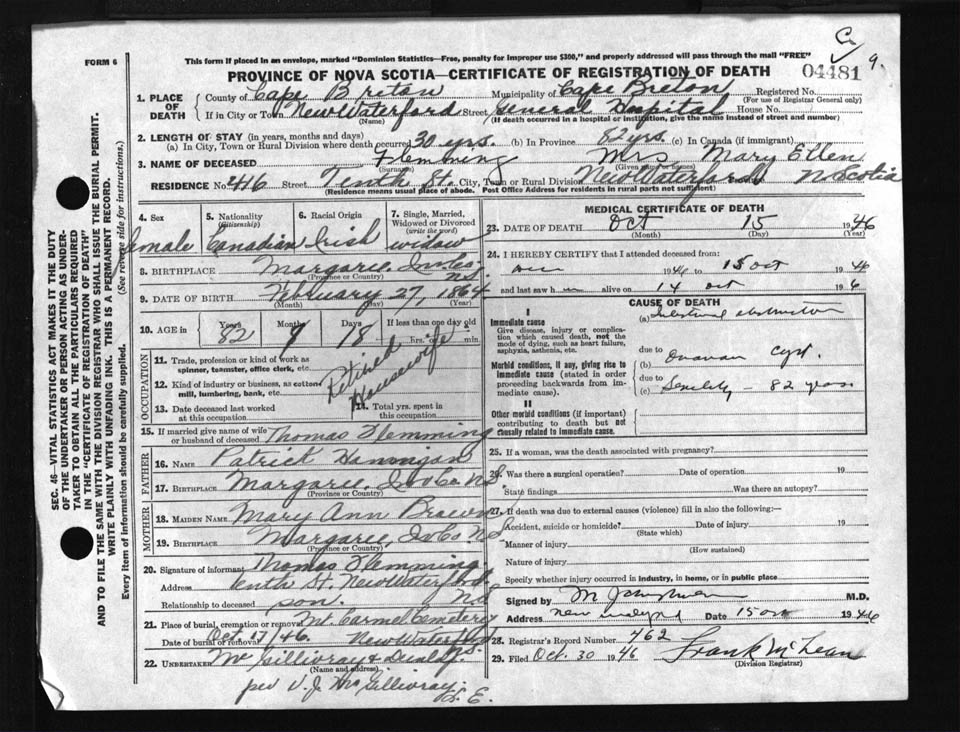 This form if placed in an envelope, marked "Dominion Statistics—Free, penalty for improper use $300," and properly addressed will pass through the mail "FREE"
FORM 6
9.
04481
PROVINCE OF NOVA SCOTIA—CERTIFICATE OF REGISTRATION OF DEATH
1. PLACE OF DEATH
County of Cape Breton Municipality of Cape Breton Registered No.
(For use of Registrar General only)
If in City or Town New Waterford Street General Hospital House No.
(Name) (If death occurred in a hospital or institution, give the name instead of street and number)
2. LENGTH OF STAY (in years, months and days)
(a) In City, Town or Rural Division where death occurred 30 yrs. (b) In Province 82 yrs. (c) In Canada (if immigrant)
3. NAME OF DECEASED Flemming Mrs Mary Ellen
(Surname) (Given or names)
RESIDENCE No. 416 Street Tenth St. City, Town or Rural Division New Waterford N. Scotia
(Residence means usual place of abode. Post Office Address for residents in rural parts not sufficient)
SEC. 46—VITAL STATISTICS ACT MAKES IT THE DUTY
OF THE UNDERTAKER OR PERSON ACTING AS UNDER-
TAKER TO OBTAIN ALL THE PARTICULARS REQUIRED
IN THE "CERTIFICATE OF REGISTRATION OF DEATH"
AND TO FILE THE SAME WITH THE DIVISION REGISTRAR WHO SHALL ISSUE THE BURIAL PERMIT.
WRITE PLAINLY WITH UNFADING INK. THIS IS A PERMANENT RECORD.
Every item of information should be carefully supplied. (See reverse side for instructions.)
4. Sex 5. Nationality (Citizenship) 6. Racial Origin 7. Single, Married, Widowed or Divorced (write the word)
female Canadian Irish widow
8. BIRTHPLACE Margaree Inv Co. N.S.
(Province or Country)
9. DATE OF BIRTH February 27, 1864
(Month) (Day) (Year)
10. AGE in Years Months Days If less than one day old
82 9 18 hrs. or min.
OCCUPATION
11. Trade, profession or kind of work as spinner, teamster, office clerk, etc.
12. Kind of industry or business, as cotton mill, lumbering, bank, etc.
Retired Housewife
13. Date deceased last worked at this occupation
14. Total yrs. spent in this occupation
15. If married give name of wife or husband of deceased Thomas Flemming
FATHER
16. NAME Patrick Hannigan
17. BIRTHPLACE Margaree, Inv Co NS
(Province or Country)
MOTHER
18. MAIDEN NAME Mary Ann Brown
19. BIRTHPLACE Margaree, Inv Co NS
(Province or Country)
20. Signature of informant Thomas Flemming
Address Tenth St. New Waterford N.S
Relationship to deceased son.
21. Place of burial, cremation or removal Mt. Carmel Cemetery
Date of burial or removal Oct 17/46. New Waterford N.S.
22. UNDERTAKER McGillivray &
(Name and address)
per V. J. McGillivray L. E.
MEDICAL CERTIFICATE OF DEATH
23. DATE OF DEATH Oct 15 1946
(Month) (Day) (Year)
24. I HEREBY CERTIFY that I attended deceased from:
1946 to 15 Oct 1946
and last saw h alive on 14 Oct 1946
CAUSE OF DEATH
I
Immediate cause
Give disease, injury or complication which caused death, not the mode of dying, such as heart failure, asphyxia, asthenia, etc.
(a) Intestinal obstruction
due to
Morbid conditions, if any, giving rise to immediate cause (stated in order proceeding backwards from immediate cause).
(b) Ovarian cyst.
due to
(c) Senility — 82 years
II
Other morbid conditions (if important) contributing to death but not causally related to immediate cause.
25. If a woman, was the death associated with pregnancy?
26. Was there a surgical operation? Date of operation 19
State findings Was there an autopsy?
27. If death was due to external causes (violence) fill in also the following:—
Accident, suicide or homicide? Date of injury 19
(State which)
Manner of injury
(How sustained)
Nature of injury
Specify whether injury occurred in industry, in home, or in public place
Signed by M M.D.
Address New Waterford Date 15 Oct 1946
28. Registrar's Record Number 462
29. Filed Oct. 30 1946 Frank McLean
(Division Registrar)